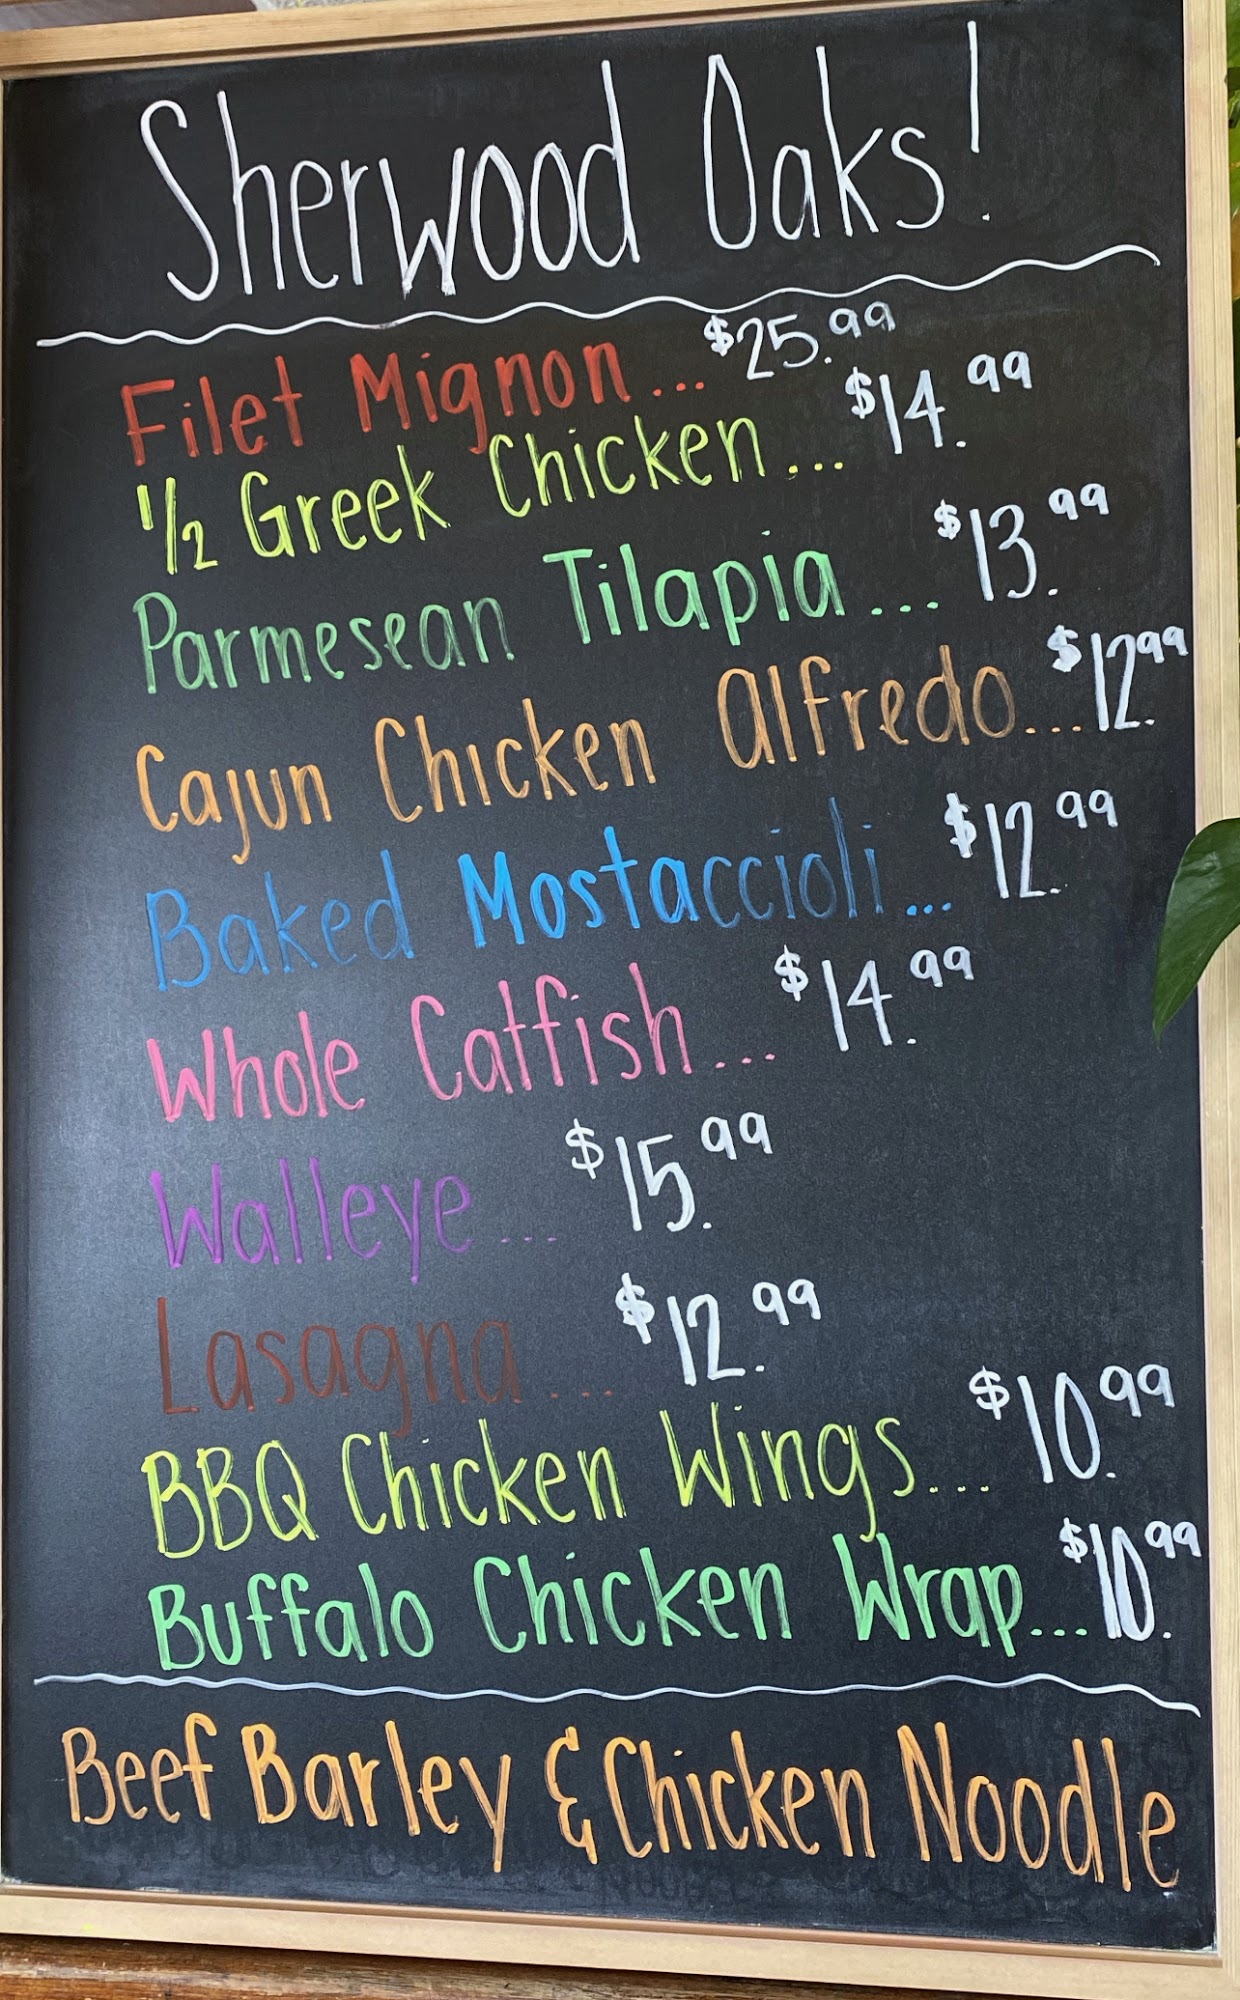 Sherwood Oaks!
Filet Mignon... $25.99
1/2 Greek Chicken... $14.99
Parmesean Tilapia... $13.99
Cajun Chicken Alfredo... $12.99
Baked Mostaccioli... $12.99
Whole Catfish... $14.99
Walleye... $15.99
Lasagna... $12.99
BBQ Chicken Wings... $10.99
Buffalo Chicken Wrap... $10.99
Beef Barley & Chicken Noodle